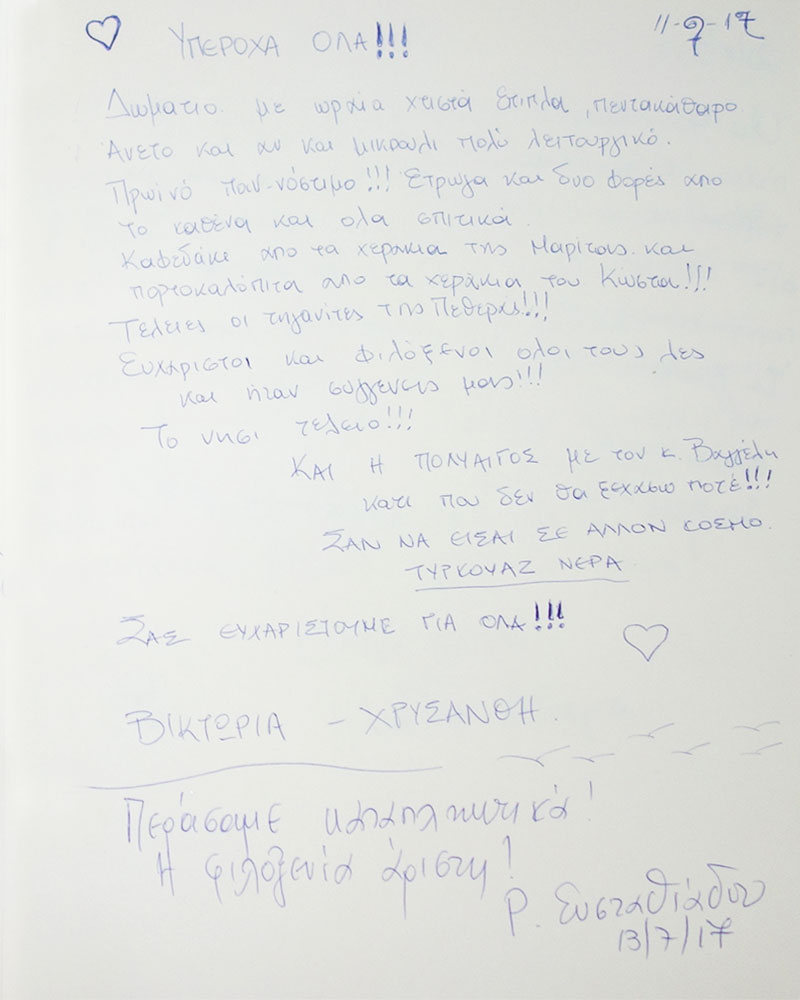 ΥΠΕΡΟΧΑ ΟΛΑ!!! 11-9-17
Δωματιο με ωραία χτιστά έπιπλα, πεντακάθαρο
Άνετο και αν και μικρουλι πολύ λειτουργικό.
Πρωινό παν-νόστιμο!!! Ετρωγα και δυο φορές απο
το καθένα και ολα σπιτικά.
Καφεδάκι απο τα χεράκια της Μαρίτσας και
πορτοκαλόπιτα απο τα χεράκια του Κώστα!!!
Τέλειες οι τηγανίτες της Πεθεράς!!!
Ευχάριστοι και φιλόξενοι ολοι τους λες
και ήταν συγγενείς μας!!!
Το νησι τέλειο!!!
ΚΑΙ Η ΠΟΛΥΑΙΓΟΣ με τον κ. Βαγγέλη
κατι που δεν θα ξεχάσω ποτέ!!!
ΣΑΝ ΝΑ ΕΙΣΑΙ ΣΕ ΑΛΛΟΝ ΚΟΣΜΟ.
ΤΥΡΚΟΥΑΖ ΝΕΡΑ
ΣΑΣ ΕΥΧΑΡΙΣΤΟΥΜΕ ΓΙΑ ΟΛΑ!!!
ΒΙΚΤΩΡΙΑ – ΧΡΥΣΑΝΘΗ.
Περάσαμε καταπληκτικά!
Η φιλοξενία άριστη!
Ρ. Ευσταθιάδου
13/7/17